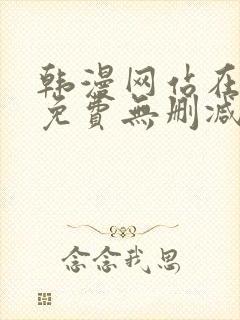 韩漫网站在
免費無刪减
念念我思